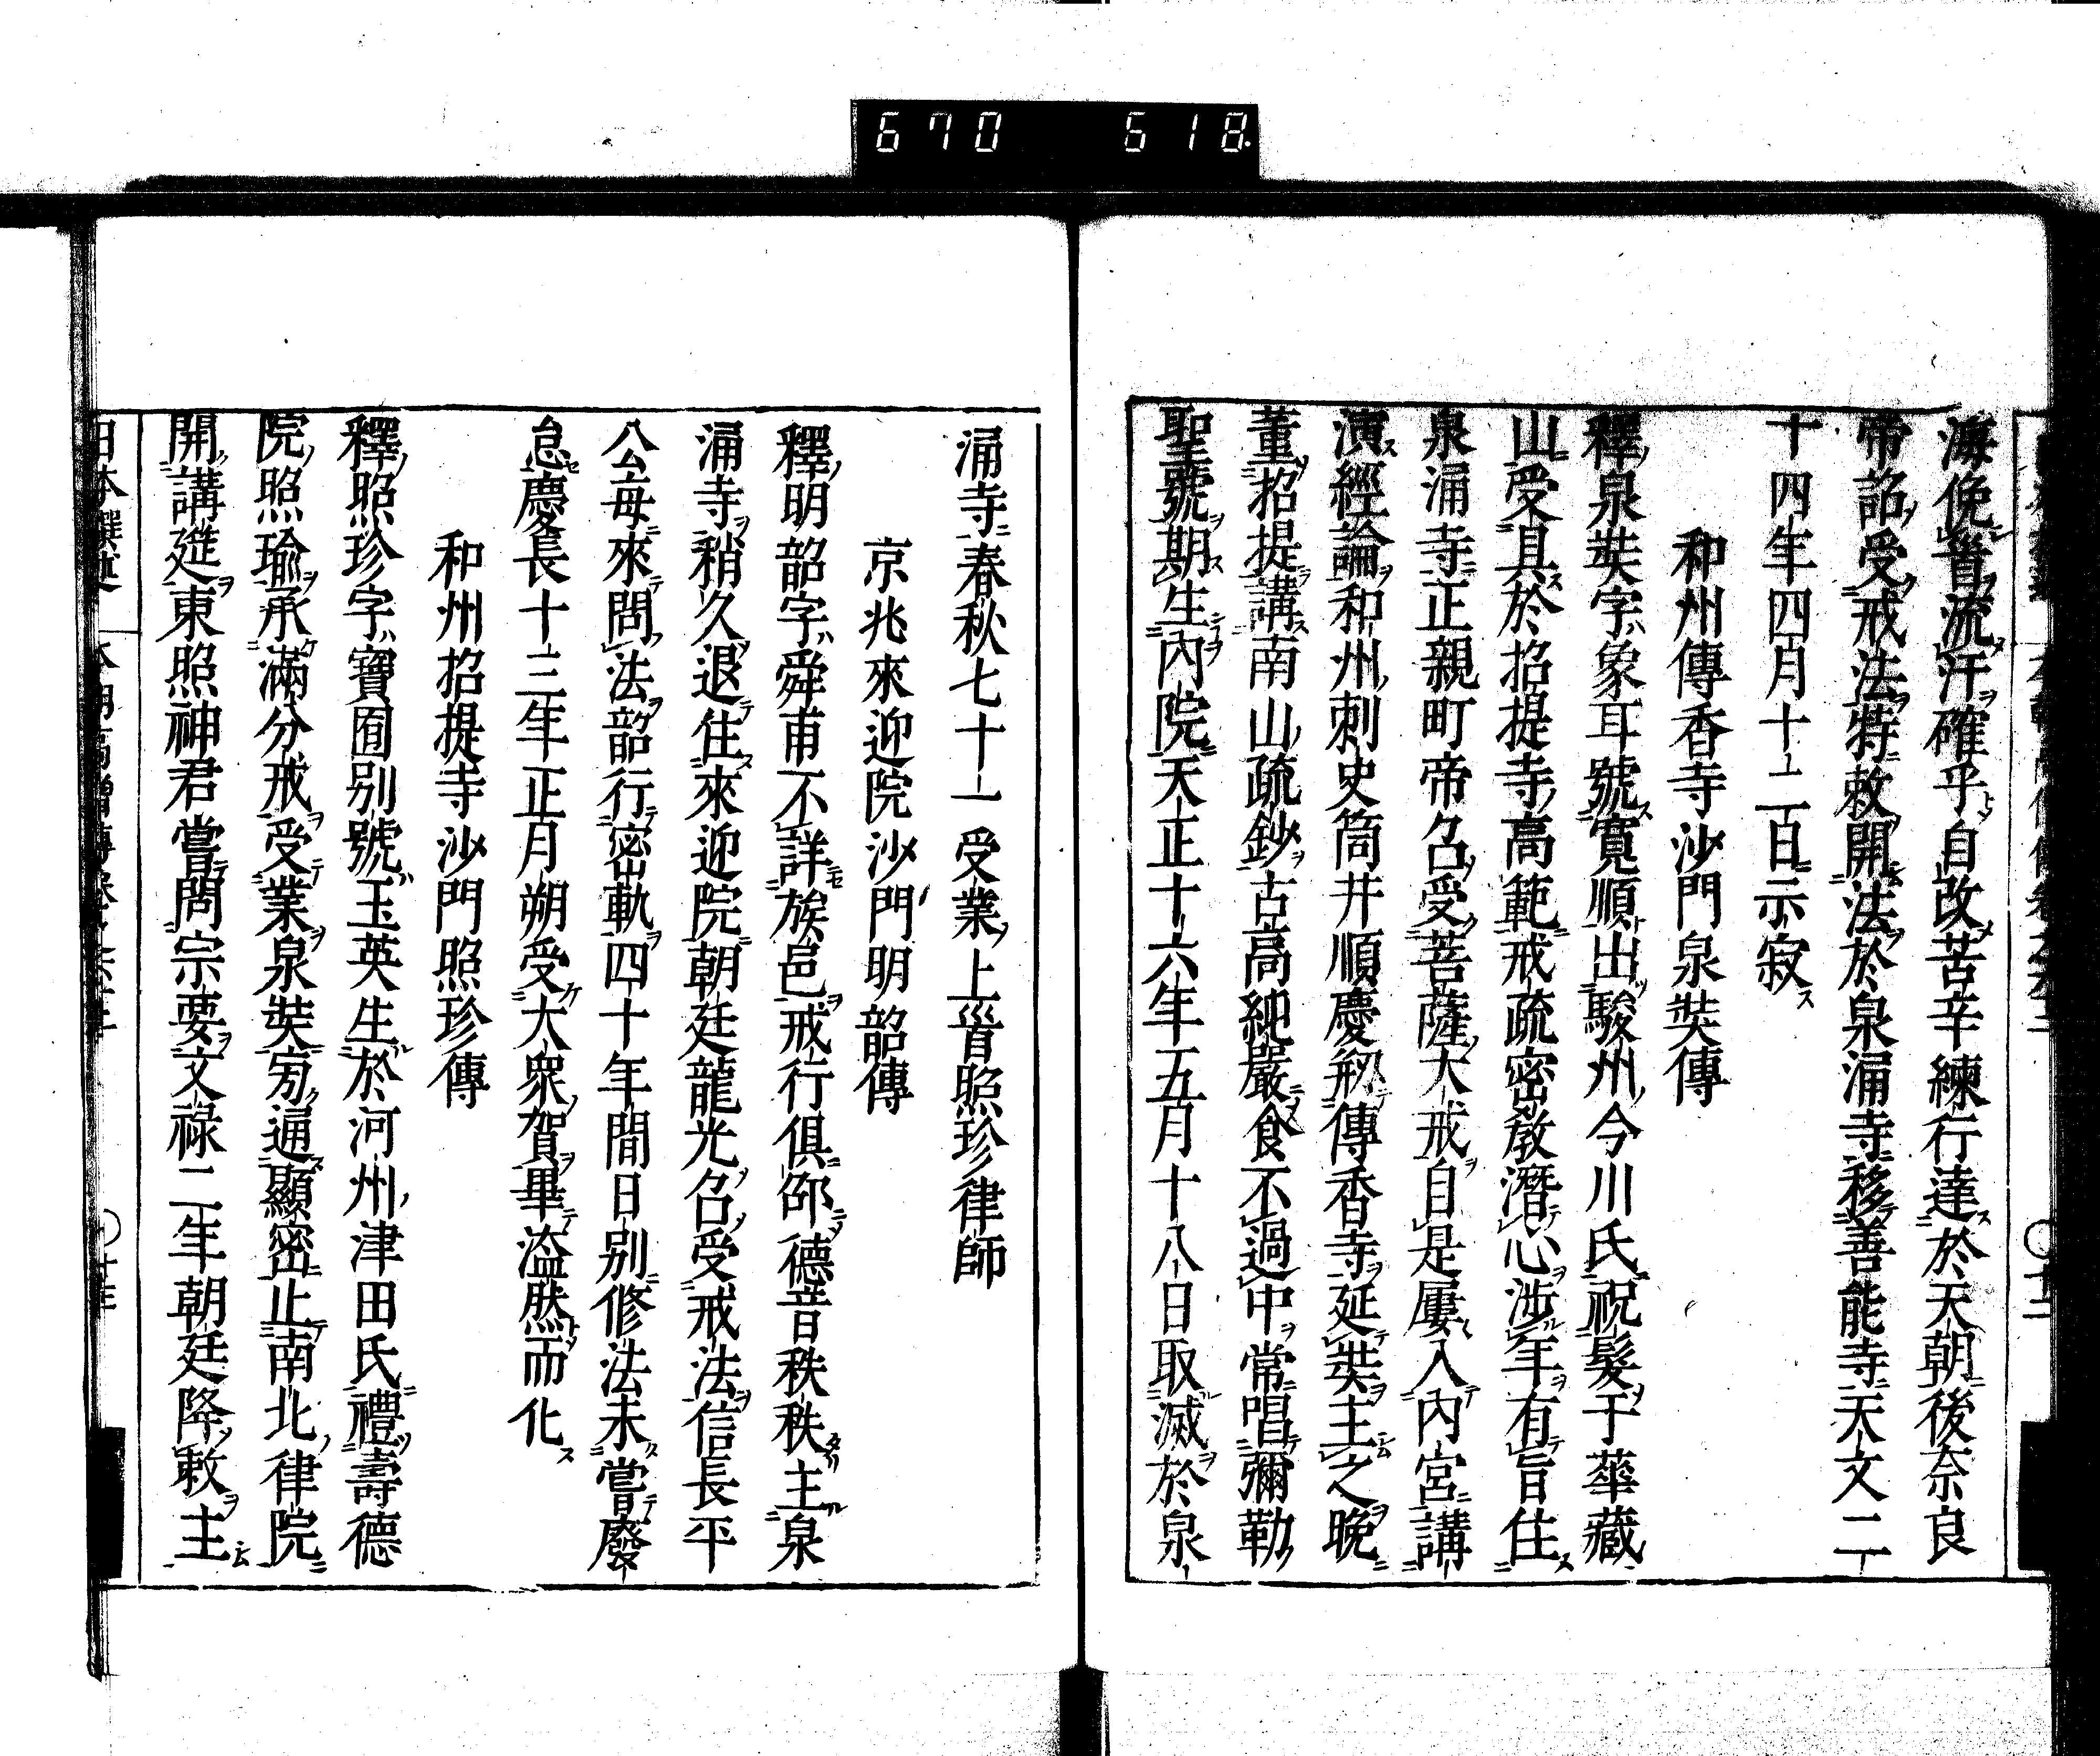 670 618
海俛首流汗確乎自改苦辛練行達於天朝後奈良
帝詔受戒法特敕開法於泉涌寺移善能寺天文二
十四年四月十二日示寂
和州傳香寺沙門泉奘傳
釋泉奘字象耳號寬順出駿州今川氏祝髮于華藏
山受具於招提寺高範戒疏密教潛心涉年有旨住
泉涌寺正親町帝召受菩薩大戒自是屢入內宮講
演經論和州刺史筒井順慶剏傳香寺延奘主之晚
董招提講南山疏鈔古高純嚴食不過中常唱彌勒
聖號期生內院天正十六年五月十八日取滅於泉
涌寺春秋七十一受業上首照珍律師
京兆來迎院沙門明韶傳
釋明韶字舜甫不詳族邑戒行俱邵德音秩秩主泉
涌寺稍久退住來迎院朝廷龍光召受戒法信長平
公每來問法韶行密軌四十年間日別修法未嘗廢
怠慶長十三年正月朔受大眾賀畢溘然而化
和州招提寺沙門照珍傳
釋照珍字寶囿別號玉英生於河州津田氏禮壽德
院照瑜承滿分戒受業泉奘旁通顯密止南北律院
開講筵東照神君嘗問宗要文祿二年朝廷降敕主
日本撰述 本朝高僧傳卷